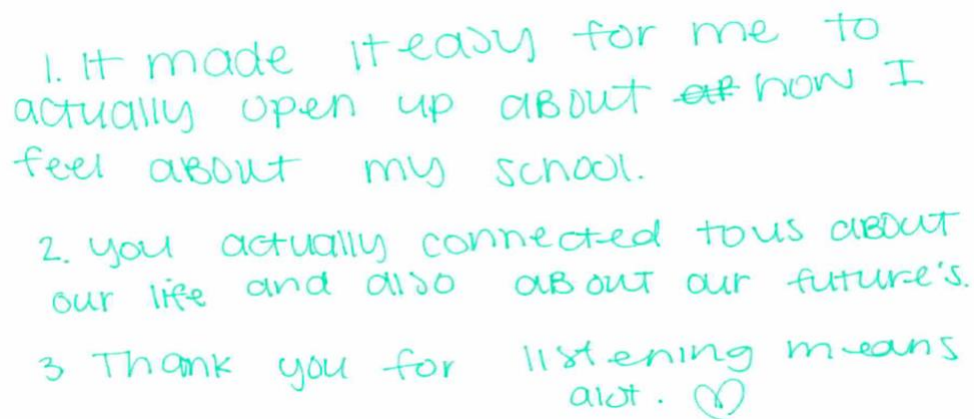 1. It made it easy for me to
actually open up about how I
feel about my school.
2. you actually connected to us about
our life and also about our future's.
3 Thank you for listening means
alot. ♡